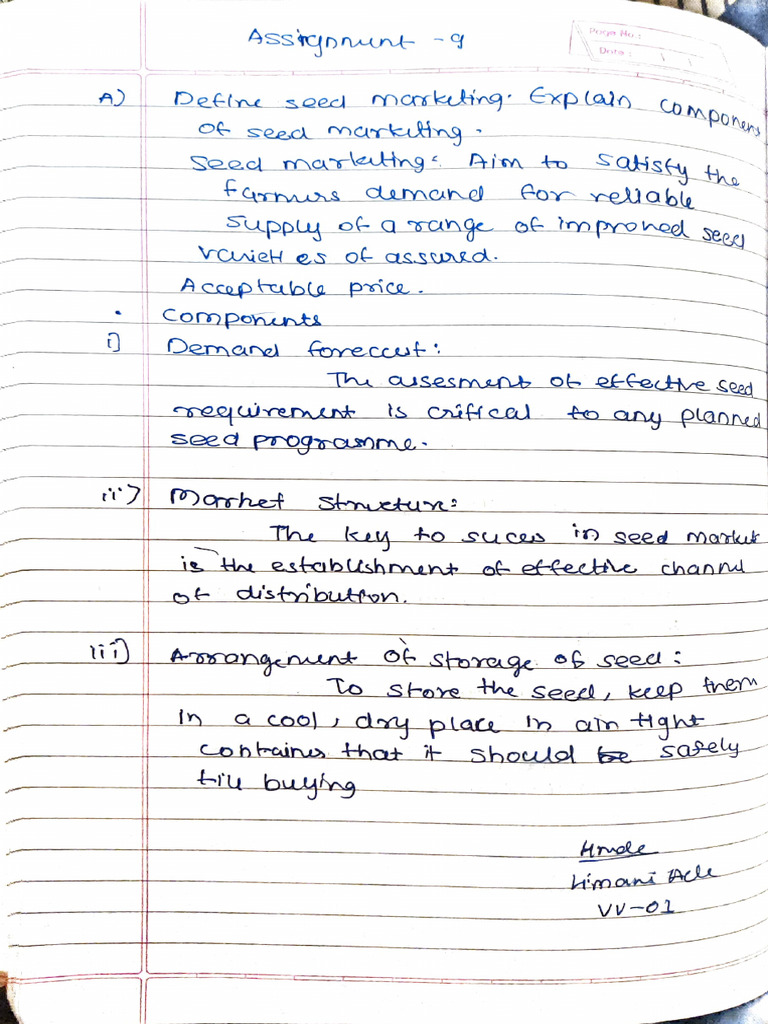 Assignment - 9
Page No.:
Date:
A) Define seed marketing. Explain components
of seed marketing.
Seed marketing: Aim to satisfy the
farmers demand for reliable
supply of a range of improned seed
varieties of assured.
Acceptable price.
• Components
i) Demand foreccust:
The assesment of effective seed
requirement is critical to any planned
seed programme.
ii) Market structure:
The key to suces in seed market
is the establishment of effective channel
of distribution.
iii) Arrangement of storage of seed:
To store the seed, keep them
in a cool, dry place in air tight
containers that it should be safely
till buying
VV-01